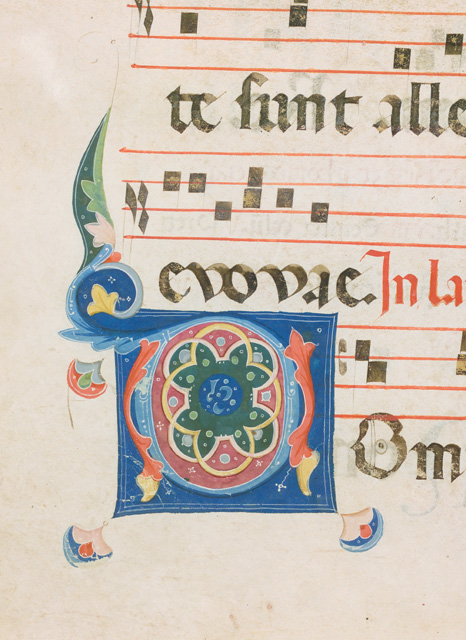 te sunt alle
evovae. In la
DOm